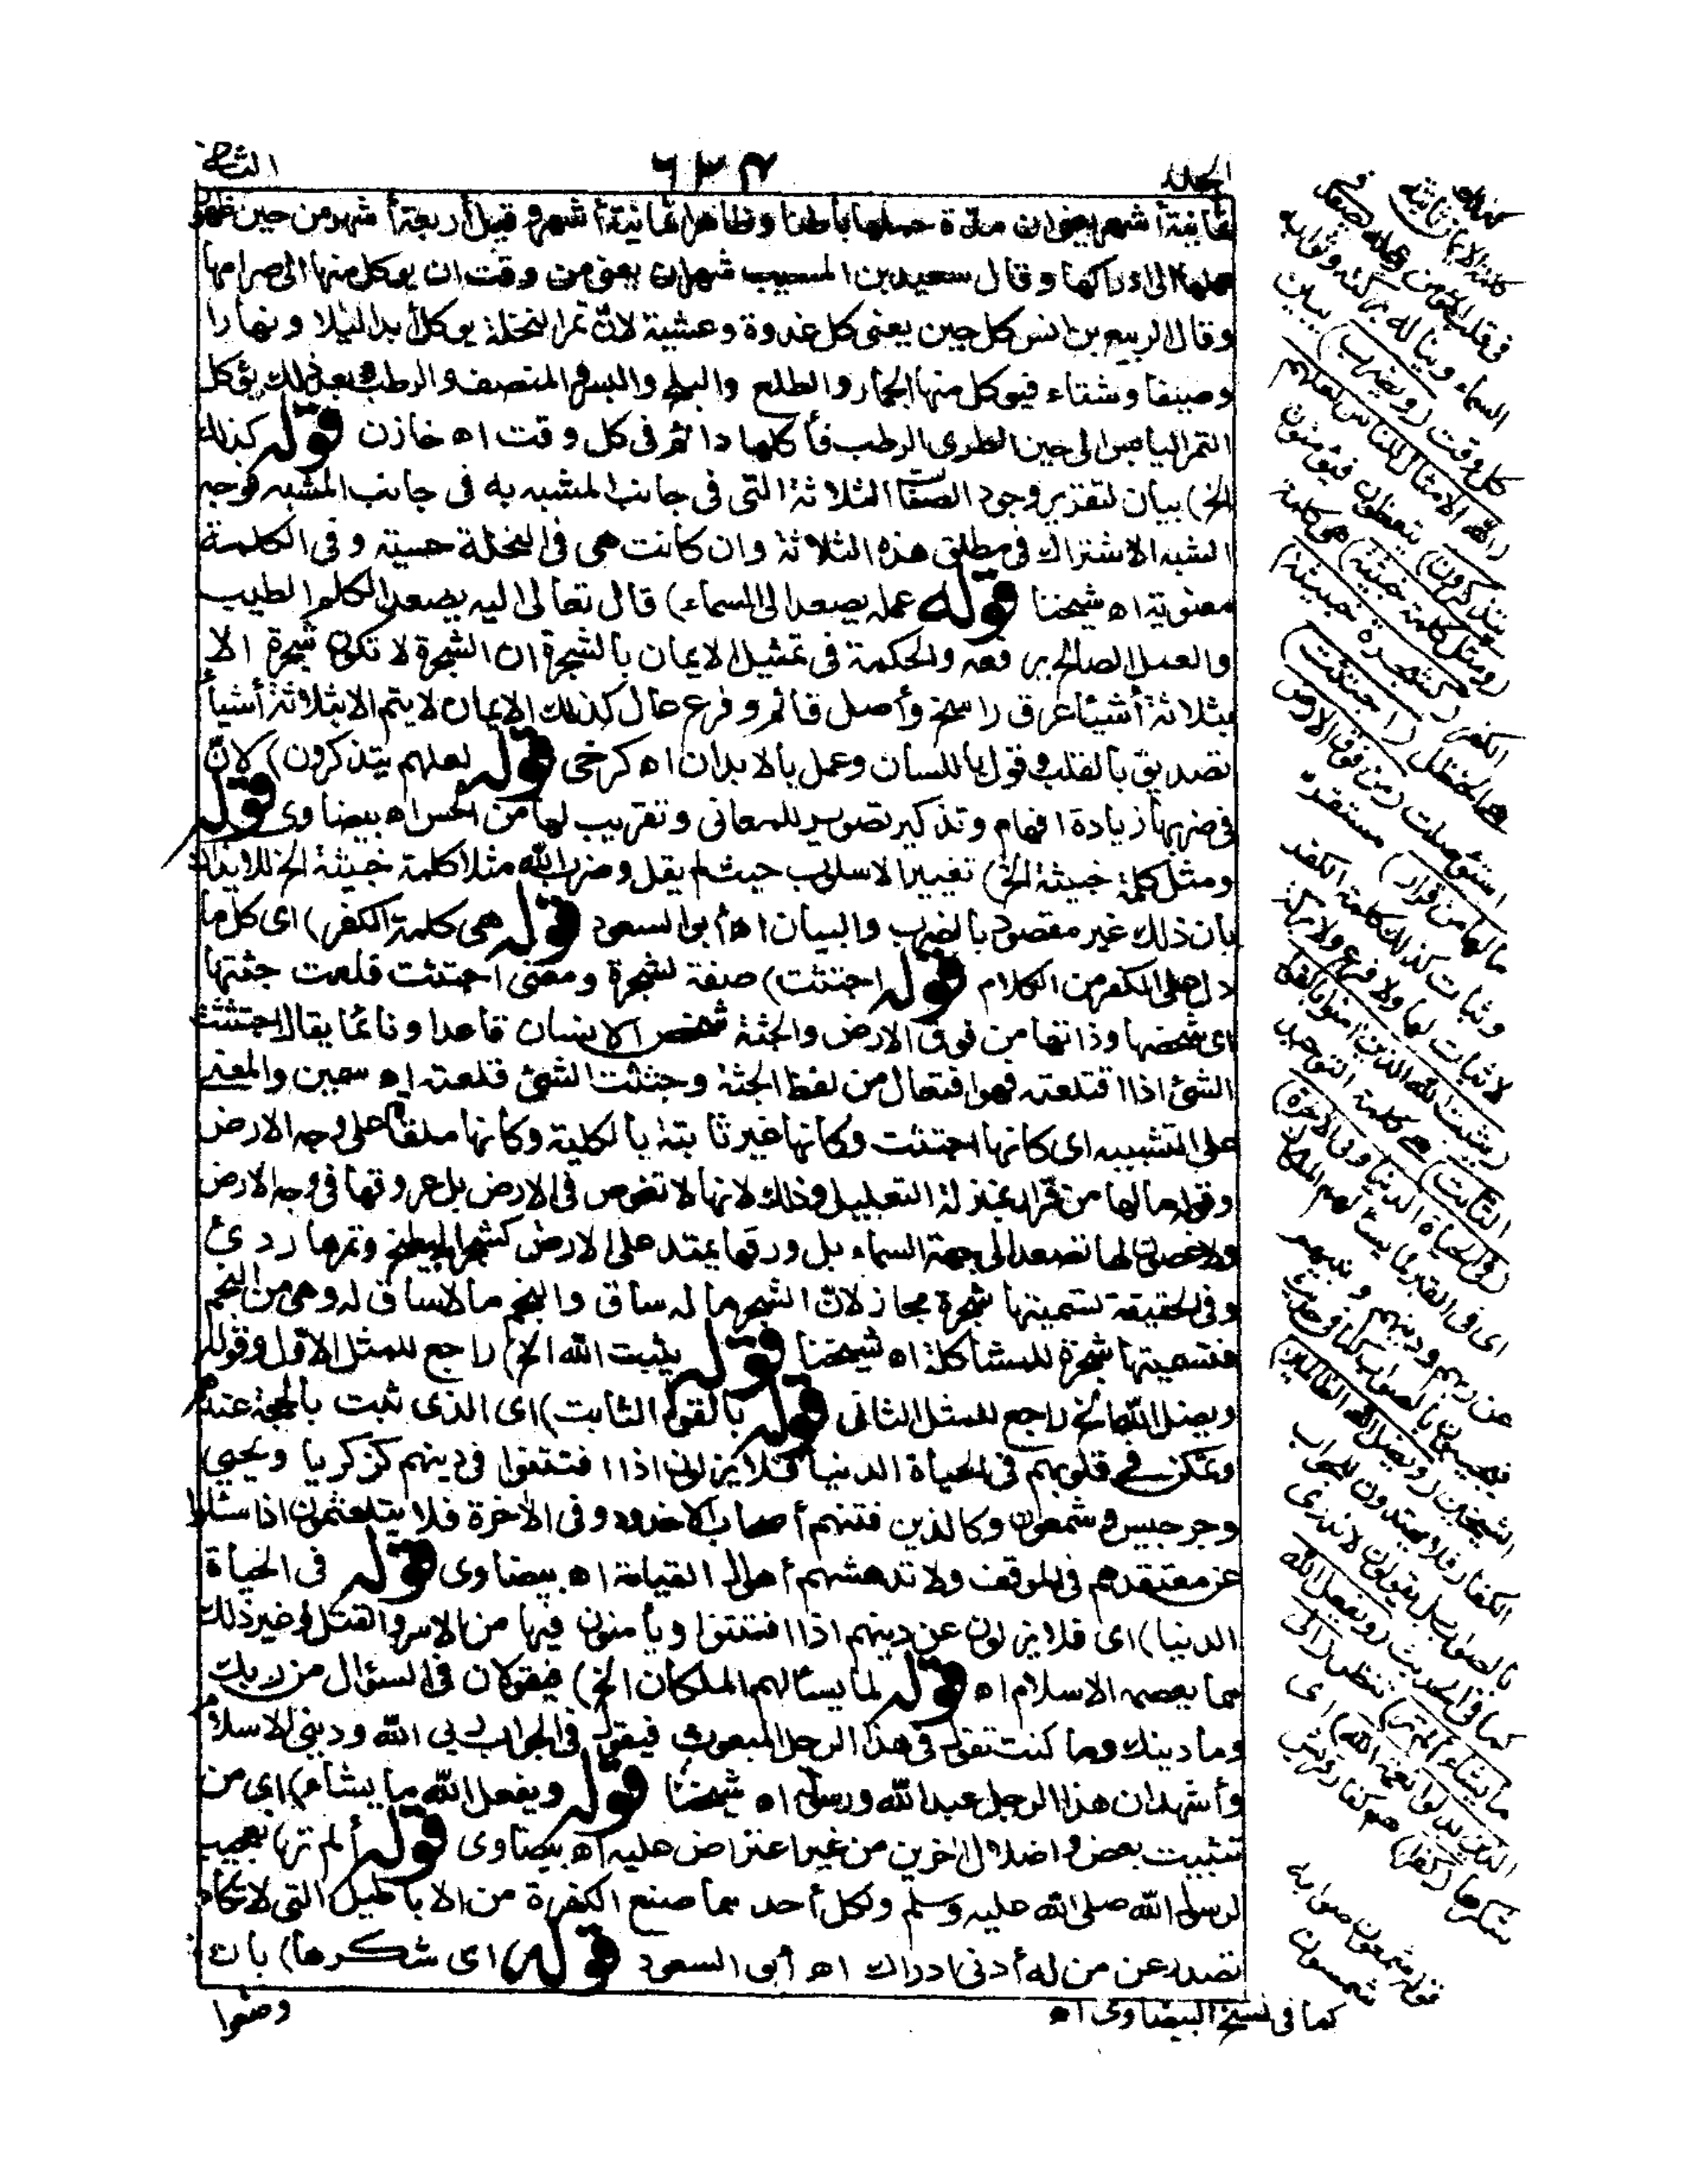 الجلد ٦٢٣ الثانى
ثمانية أشهر يعنى ان مدّة حملها باطنا وظاهرا ثمانية أشهر وقيل أربعة أشهر من حين ظهور
حملها الى ادراكها وقال سعيد بن المسيب شهران يعنى من وقت ان يوكل منها الى صرامها
وقال الربيع بن انس كل حين يعنى كل غدوة وعشية لانّ ثمر النخلة يوكل أبدا ليلا ونهارا
وصيفا وشتاء فيوكل منها الجمار والطلع والبلح والبسر والمنصف والرطب وبعد ذلك يؤكل
التمر اليابس الى حين الطرى الرطب فأكلها دائم فى كل وقت اه خازن قوله كذلك
الخ) بيان لتقرير وجود الصفات الثلاثة التى فى جانب المشبه به فى جانب المشبه فوجه
الشبه الاشتراك فى مطلق هذه الثلاثة وان كانت هى فى النخلة حسية وفى الكلمة
معنوية اه شيخنا قوله عمله يصعد الى السماء) قال تعالى اليه يصعد الكلم الطيب
والعمل الصالح يرفعه والحكمة فى تمثيل الايمان بالشجرة ان الشجرة لا تكون شجرة الا
بثلاثة أشياء عرق راسخ وأصل قائم وفرع عال كذلك الايمان لا يتم الا بثلاثة أشياء
تصديق بالقلب وقول باللسان وعمل بالابدان اه كرخى قوله لعلهم يتذكرون) لانّ
فى ضربها زيادة افهام وتذكير تصوير للمعانى وتقريب لها من الحس اه بيضاوى قوله
ومثل كلمة خبيثة الخ) تغيير الاسلوب حيث لم يقل وضرب الله مثلا كلمة خبيثة الخ للايذان
بان ذلك غير مقصود بالضرب والبيان اه أبو السعود قوله هى كلمة الكفر) اى كل ما
دل على الكفر من الكلام قوله اجتثت) صفة لشجرة ومعنى اجتثت قلعت جثتها
اى شخصها وذاتها من فوق الارض والجثة شخص الانسان قاعدا ونائما يقال اجتثثت
الشئ اذا اقتلعته فهو افتعال من لفظ الجثة وجثثت الشئ قلعته اه سمين والمعنى
على التشبيه اى كانها اجتثت وكانها غير ثابتة بالكلية وكانها ملقاة على وجه الارض
وقوله ما لها من قرار بمنزلة التعليل وذلك لانها لا تغوص فى الارض بل عروقها فى وجه الارض
ولا غصون لها تصعد الى جهة السماء بل ورقها يمتد على الارض كشجر البطيخ وثمرها ردئ
وفى الحقيقة تسميتها شجرة مجاز لانّ الشجر ما له ساق والنجم ما لا ساق له وهى من النجم
فتسميتها شجرة للمشاكلة اه شيخنا قوله يثبت الله الخ) راجع للمثل الاوّل وقوله
ويضل الله الخ راجع للمثل الثانى قوله بالقول الثابت) اى الذى ثبت بالحجة عندهم
وتمكن فى قلوبهم فى الحياة الدنيا فلا يزلون اذا افتتنوا فى دينهم كزكريا ويحيى
وجرجيس وشمعون وكالذين فتنهم أصحاب الاخدود وفى الآخرة فلا يتلعثمون اذا سئلوا
عن معتقدهم فى الموقف ولا تدهشهم أهوال القيامة اه بيضاوى قوله فى الحياة
الدنيا) اى فلا يزلون عن دينهم اذا افتتنوا ويأمنون فيها من الاسر والقتل وغير ذلك
مما يعصمه الاسلام اه قوله لما يسألهم الملكان الخ) فيقولان فى السؤال من ربك
وما دينك وما كنت تقول فى هذا الرجل المبعوث فيقول فى الجواب ربى الله ودينى الاسلام
وأشهد ان هذا الرجل عبد الله ورسوله اه شيخنا قوله ويفعل الله ما يشاء) اى من
تثبيت بعض واضلال آخرين من غير اعتراض عليه اه بيضاوى قوله ألم تر) تعجيب
لرسول الله صلى الله عليه وسلم ولكل أحد مما صنع الكفرة من الاباطيل التى لا تكاد
تصدر عن من له أدنى ادراك اه أبى السعود قوله) اى شكرها) بان
وضعوا
كذلك كلمة الايمان ثابتة
فى قلب المؤمن وعمله يصعد فى
السماء ويناله بركته وثوابه
كل وقت (ويضرب) يبين
(الله الامثال للناس لعلهم
يتذكرون) يتعظون فيؤمنون
(ومثل كلمة خبيثة) هى كلمة
الكفر (كشجرة خبيثة)
هى الحنظل (اجتثت)
استؤصلت (من فوق الارض
ما لها من قرار) مستقر
وثبات كذلك كلمة الكفر
لا ثبات لها ولا فرع ولا بركة
(يثبت الله الذين امنوا بالقول
الثابت) هى كلمة التوحيد
(فى الحياة الدنيا وفى الآخرة)
اى فى القبر لما يسألهم الملكان
عن ربهم ودينهم ونبيهم
فيجيبون بالصواب كما فى حديث
الشيخين (ويضل الله الظالمين)
الكفار فلا يهتدون للجواب
بالصواب بل يقولون لا ندرى
كما فى الحديث (ويفعل الله
ما يشاء ألم تر) تنظر (الى
الذين بدلوا نعمة الله) اى
شكرها (كفرا) هم كفار قريش
قوله شمعون صوابه
شمسون
كما فى نسخ البيضاوى اه